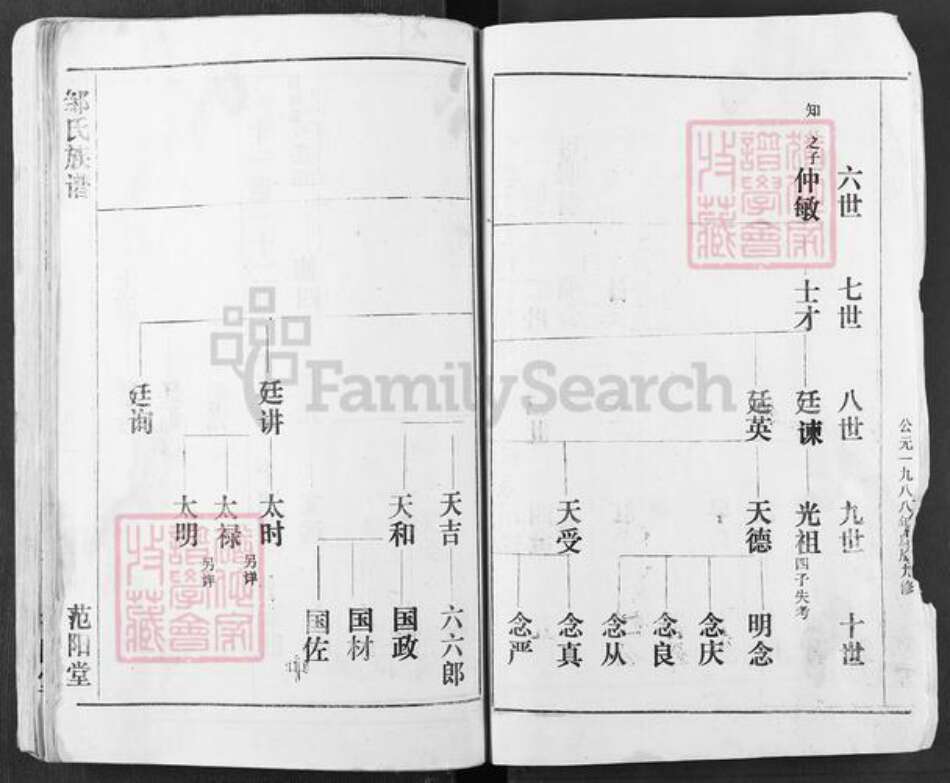 公元一九八八年戊辰九修
六世
七世
八世
九世
十世
知之子
仲敏
士才
廷谏
光祖
四子失考
廷英
天德
明念
念庆
念良
念从
天受
念真
念严
天吉
六六郎
天和
国政
国材
国佐
廷讲
太时
太禄
另详
太明
另详
廷询
邹氏族谱
范阳堂
FamilySearch